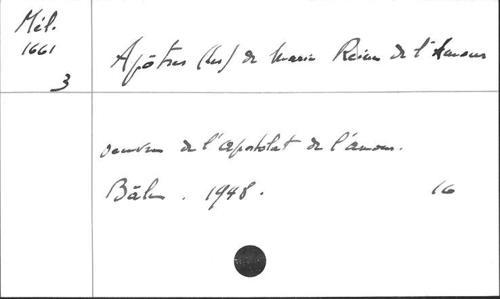 Mél.
1661
3
Apôtres (les) de Marie Reine de l'Amour
oeuvres de l'apostolat de l'amour.
Bâle. 1948. 16